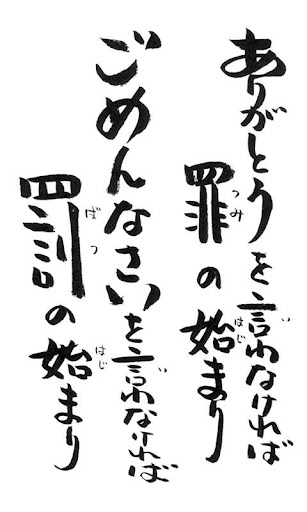 ありがとうを言わなければ
罪の始まり
ごめんなさいを言わなければ
罰の始まり